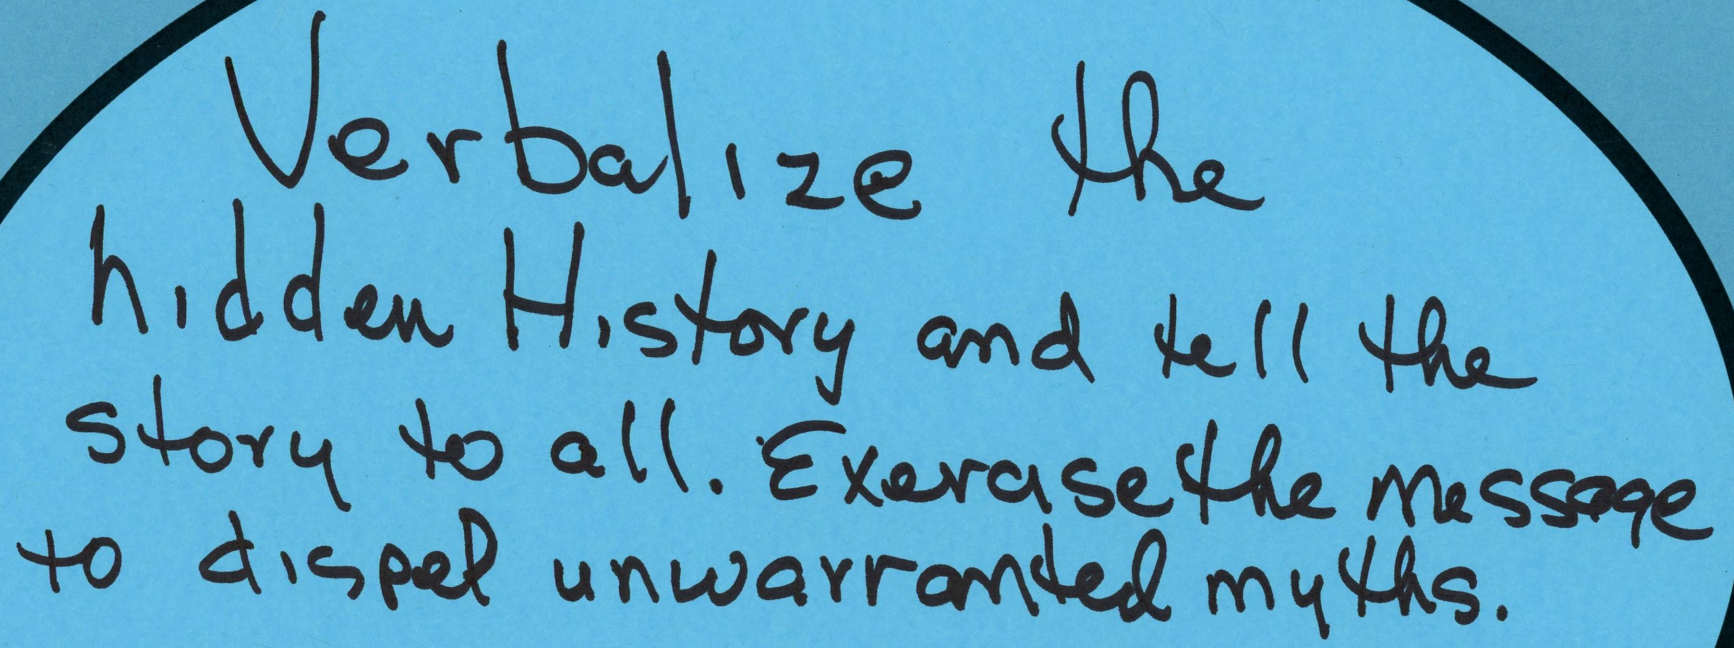 Verbalize the
hidden History and tell the
story to all. Exercise the message
to dispel unwarranted myths.